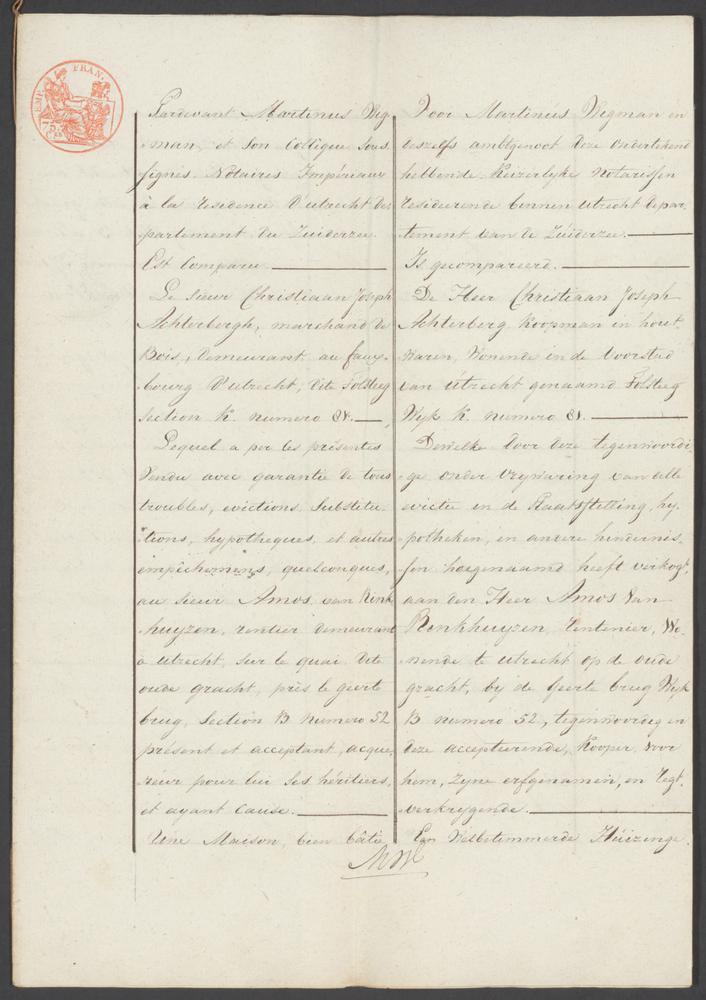 EMP. FRAN.
Pardevant Martinus Weg
man, et Son Collègue Sous
signés Notaires Impériaux
à la residence D'utrecht De
partement du Zuiderzee.
Est Comparu.
Le Sieur Christiaan Joseph
Achterbergh, marchand de
Bois, Demeurant au faux-
bourg D'utrecht, Dite Tolsteeg
Section K. numero 81.
Lequel a par les présentes
Vendu avec garantie de tous
troubles, evictions, Substitu-
tions, hypotheques, et autres
empêchemens, quelconques,
au sieur Amos van Renk
huyzen, rentier demeurant
a utrecht, Sur le quai Dite
oude gracht, près le geerte
brug, Section B numero 52
présent et acceptant, acque
reur pour lui Ses héritiers,
et ayant Cause.
Une Maison, bien bâtie
Voor Martinus Wegman en
deszelfs ambtgenoot deze Ondertekend
hebbende Keizerlyke Notarissen
resideerende binnen utrecht depar
tement van de Zuiderzee.
Is gecompareerd.
De Heer Christiaan Joseph
Achterberg Koopman in hout
waren, Wonende in de Voorstad
van utrecht genaamd Tolsteeg
Wyk K. numero 81.
Dewelke door deze tegenwoordi
ge onder Vrywaring van alle
evictie en de Plaatsstelling, hy
potheken, en andere hindernis
sen hoegenaamd heeft verkogt,
aan den Heer Amos Van
Renkhuyzen, rentenier, Wo
nende te utrecht op de oude
gracht, by de geerte brug Wyk
B numero 52, tegenwoordig en
deze accepteerende, Kooper voor
hem, zyne erfgenamen, en regt
verkrygende.
Een Welbetimmerde Huizinge